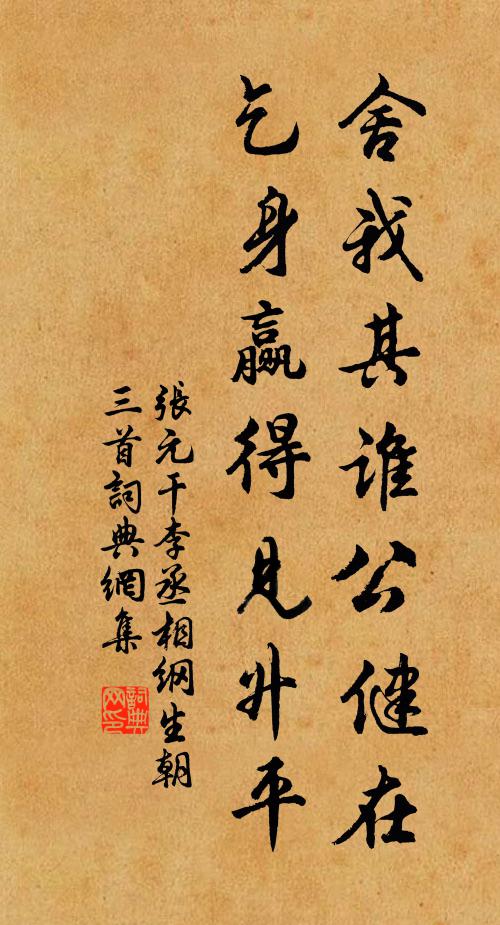 舍我其谁公健在
乞身赢得见升平
張元干李丞相纲生朝
三首詞典網集
詞典网印